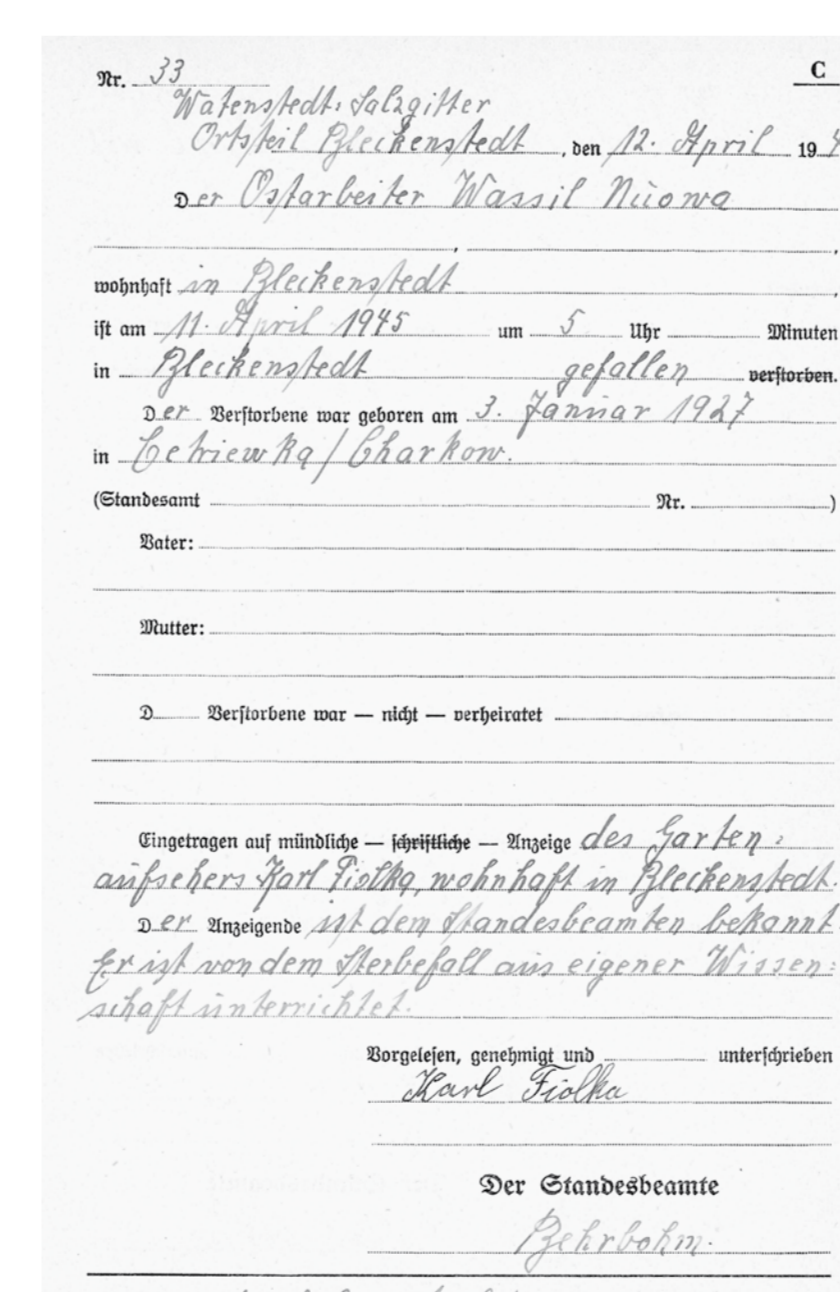 Nr. 33
C
Watenstedt-Salzgitter
Ortsteil Bleckenstedt, den 12. April 194
Der Ostarbeiter Wassil Nuowa
wohnhaft in Bleckenstedt
ist am 11. April 1945 um 5 Uhr Minuten
in Bleckenstedt gefallen verstorben.
Der Verstorbene war geboren am 3. Januar 1927
in / Charkow.
(Standesamt Nr. )
Vater:
Mutter:
D Verstorbene war — nicht — verheiratet
Eingetragen auf mündliche — schriftliche — Anzeige des Garten-
aufsehers Karl Fiolka, wohnhaft in Bleckenstedt.
Der Anzeigende ist dem Standesbeamten bekannt.
Er ist von dem Sterbefall aus eigener Wissen-
schaft unterrichtet.
Vorgelesen, genehmigt und unterschrieben
Karl Fiolka
Der Standesbeamte
Behrbohm.